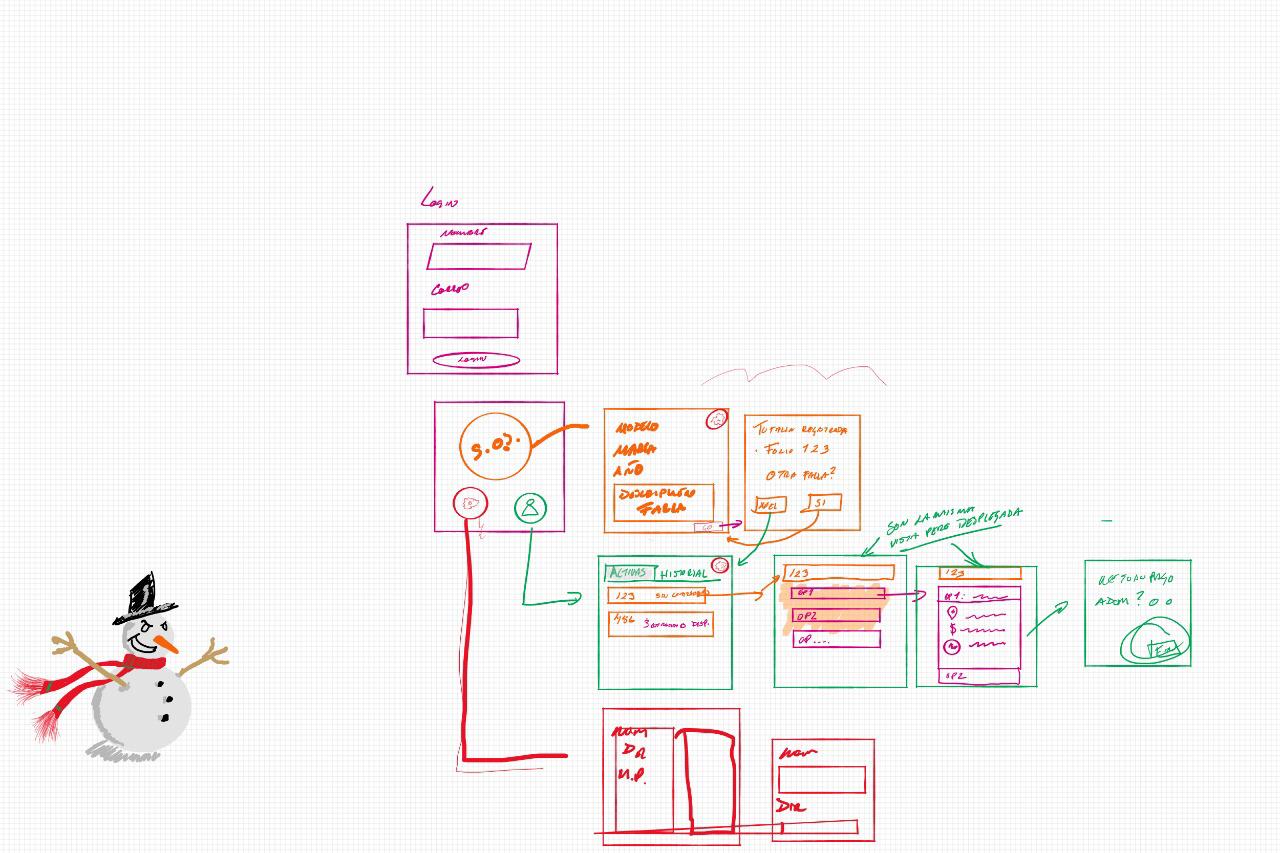 Login
Nombre
Correo
Login
S.O?.
MODELO
MARCA
AÑO
DESCRIPCIÓN
FALLA
GO
TU FALLA REGISTRADA
· FOLIO 123
OTRA FALLA?
SI
SON LA MISMA
VISTA PERO DESPLEGADA
ACTIVAS HISTORIAL
123
456
123
OP1
OP2
OP....
123
OP1:
$
OP2
ADOM?
NOM
DIR
M.P.
NOM
DIR